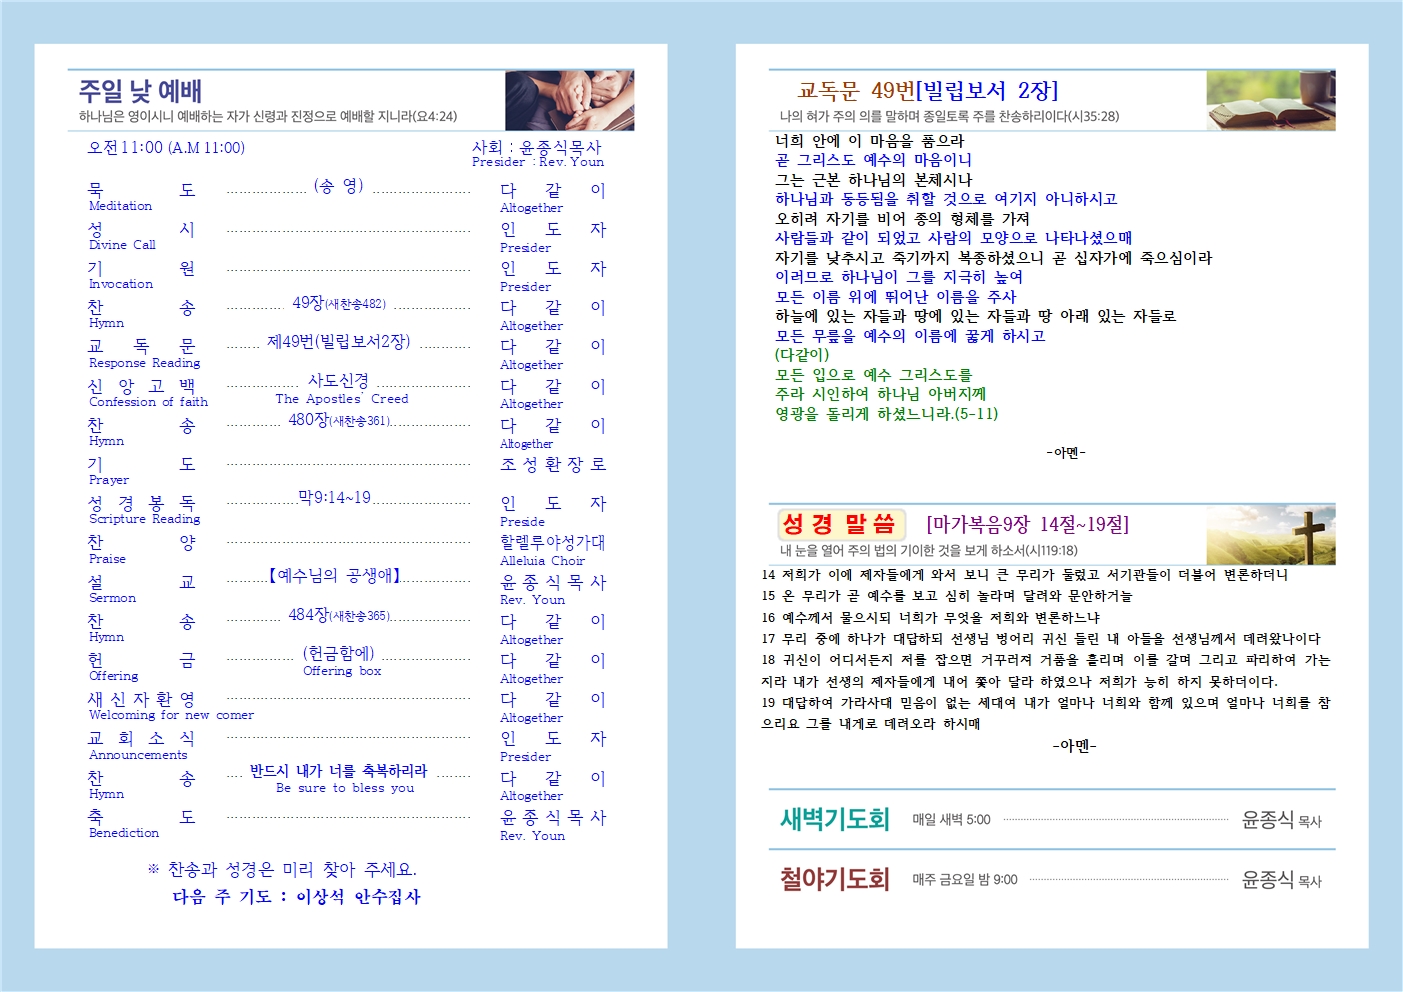 주일 낮 예배
하나님은 영이시니 예배하는 자가 신령과 진정으로 예배할 지니라(요4:24)
오전11:00 (A.M 11:00) 사회 : 윤종식목사
Presider : Rev. Youn
묵 도 (송 영) 다 같 이
Meditation Altogether
성 시 인 도 자
Divine Call Presider
기 원 인 도 자
Invocation Presider
찬 송 49장(새찬송482) 다 같 이
Hymn Altogether
교 독 문 제49번(빌립보서2장) 다 같 이
Response Reading Altogether
신 앙 고 백 사도신경 다 같 이
Confession of faith The Apostles' Creed Altogether
찬 송 480장(새찬송361) 다 같 이
Hymn Altogether
기 도 조 성 환 장 로
Prayer
성 경 봉 독 막9:14~19 인 도 자
Scripture Reading Preside
찬 양 할렐루야성가대
Praise Alleluia Choir
설 교 【예수님의 공생애】 윤 종 식 목 사
Sermon Rev. Youn
찬 송 484장(새찬송365) 다 같 이
Hymn Altogether
헌 금 (헌금함에) 다 같 이
Offering Offering box Altogether
새 신 자 환 영 다 같 이
Welcoming for new comer Altogether
교 회 소 식 인 도 자
Announcements Presider
찬 송 반드시 내가 너를 축복하리라 다 같 이
Hymn Be sure to bless you Altogether
축 도 윤 종 식 목 사
Benediction Rev. Youn
※ 찬송과 성경은 미리 찾아 주세요.
다음 주 기도 : 이상석 안수집사
교독문 49번[빌립보서 2장]
나의 혀가 주의 의를 말하며 종일토록 주를 찬송하리이다(시35:28)
너희 안에 이 마음을 품으라
곧 그리스도 예수의 마음이니
그는 근본 하나님의 본체시나
하나님과 동등됨을 취할 것으로 여기지 아니하시고
오히려 자기를 비어 종의 형체를 가져
사람들과 같이 되었고 사람의 모양으로 나타나셨으매
자기를 낮추시고 죽기까지 복종하셨으니 곧 십자가에 죽으심이라
이러므로 하나님이 그를 지극히 높여
모든 이름 위에 뛰어난 이름을 주사
하늘에 있는 자들과 땅에 있는 자들과 땅 아래 있는 자들로
모든 무릎을 예수의 이름에 꿇게 하시고
(다같이)
모든 입으로 예수 그리스도를
주라 시인하여 하나님 아버지께
영광을 돌리게 하셨느니라.(5-11)
-아멘-
성 경 말 씀 [마가복음9장 14절~19절]
내 눈을 열어 주의 법의 기이한 것을 보게 하소서(시119:18)
14 저희가 이에 제자들에게 와서 보니 큰 무리가 둘렀고 서기관들이 더불어 변론하더니
15 온 무리가 곧 예수를 보고 심히 놀라며 달려와 문안하거늘
16 예수께서 물으시되 너희가 무엇을 저희와 변론하느냐
17 무리 중에 하나가 대답하되 선생님 벙어리 귀신 들린 내 아들을 선생님께서 데려왔나이다
18 귀신이 어디서든지 저를 잡으면 거꾸러져 거품을 흘리며 이를 갈며 그리고 파리하여 가는
지라 내가 선생의 제자들에게 내어 쫓아 달라 하였으나 저희가 능히 하지 못하더이다.
19 대답하여 가라사대 믿음이 없는 세대여 내가 얼마나 너희와 함께 있으며 얼마나 너희를 참
으리요 그를 내게로 데려오라 하시매
-아멘-
새벽기도회 매일 새벽 5:00 윤종식 목사
철야기도회 매주 금요일 밤 9:00 윤종식 목사